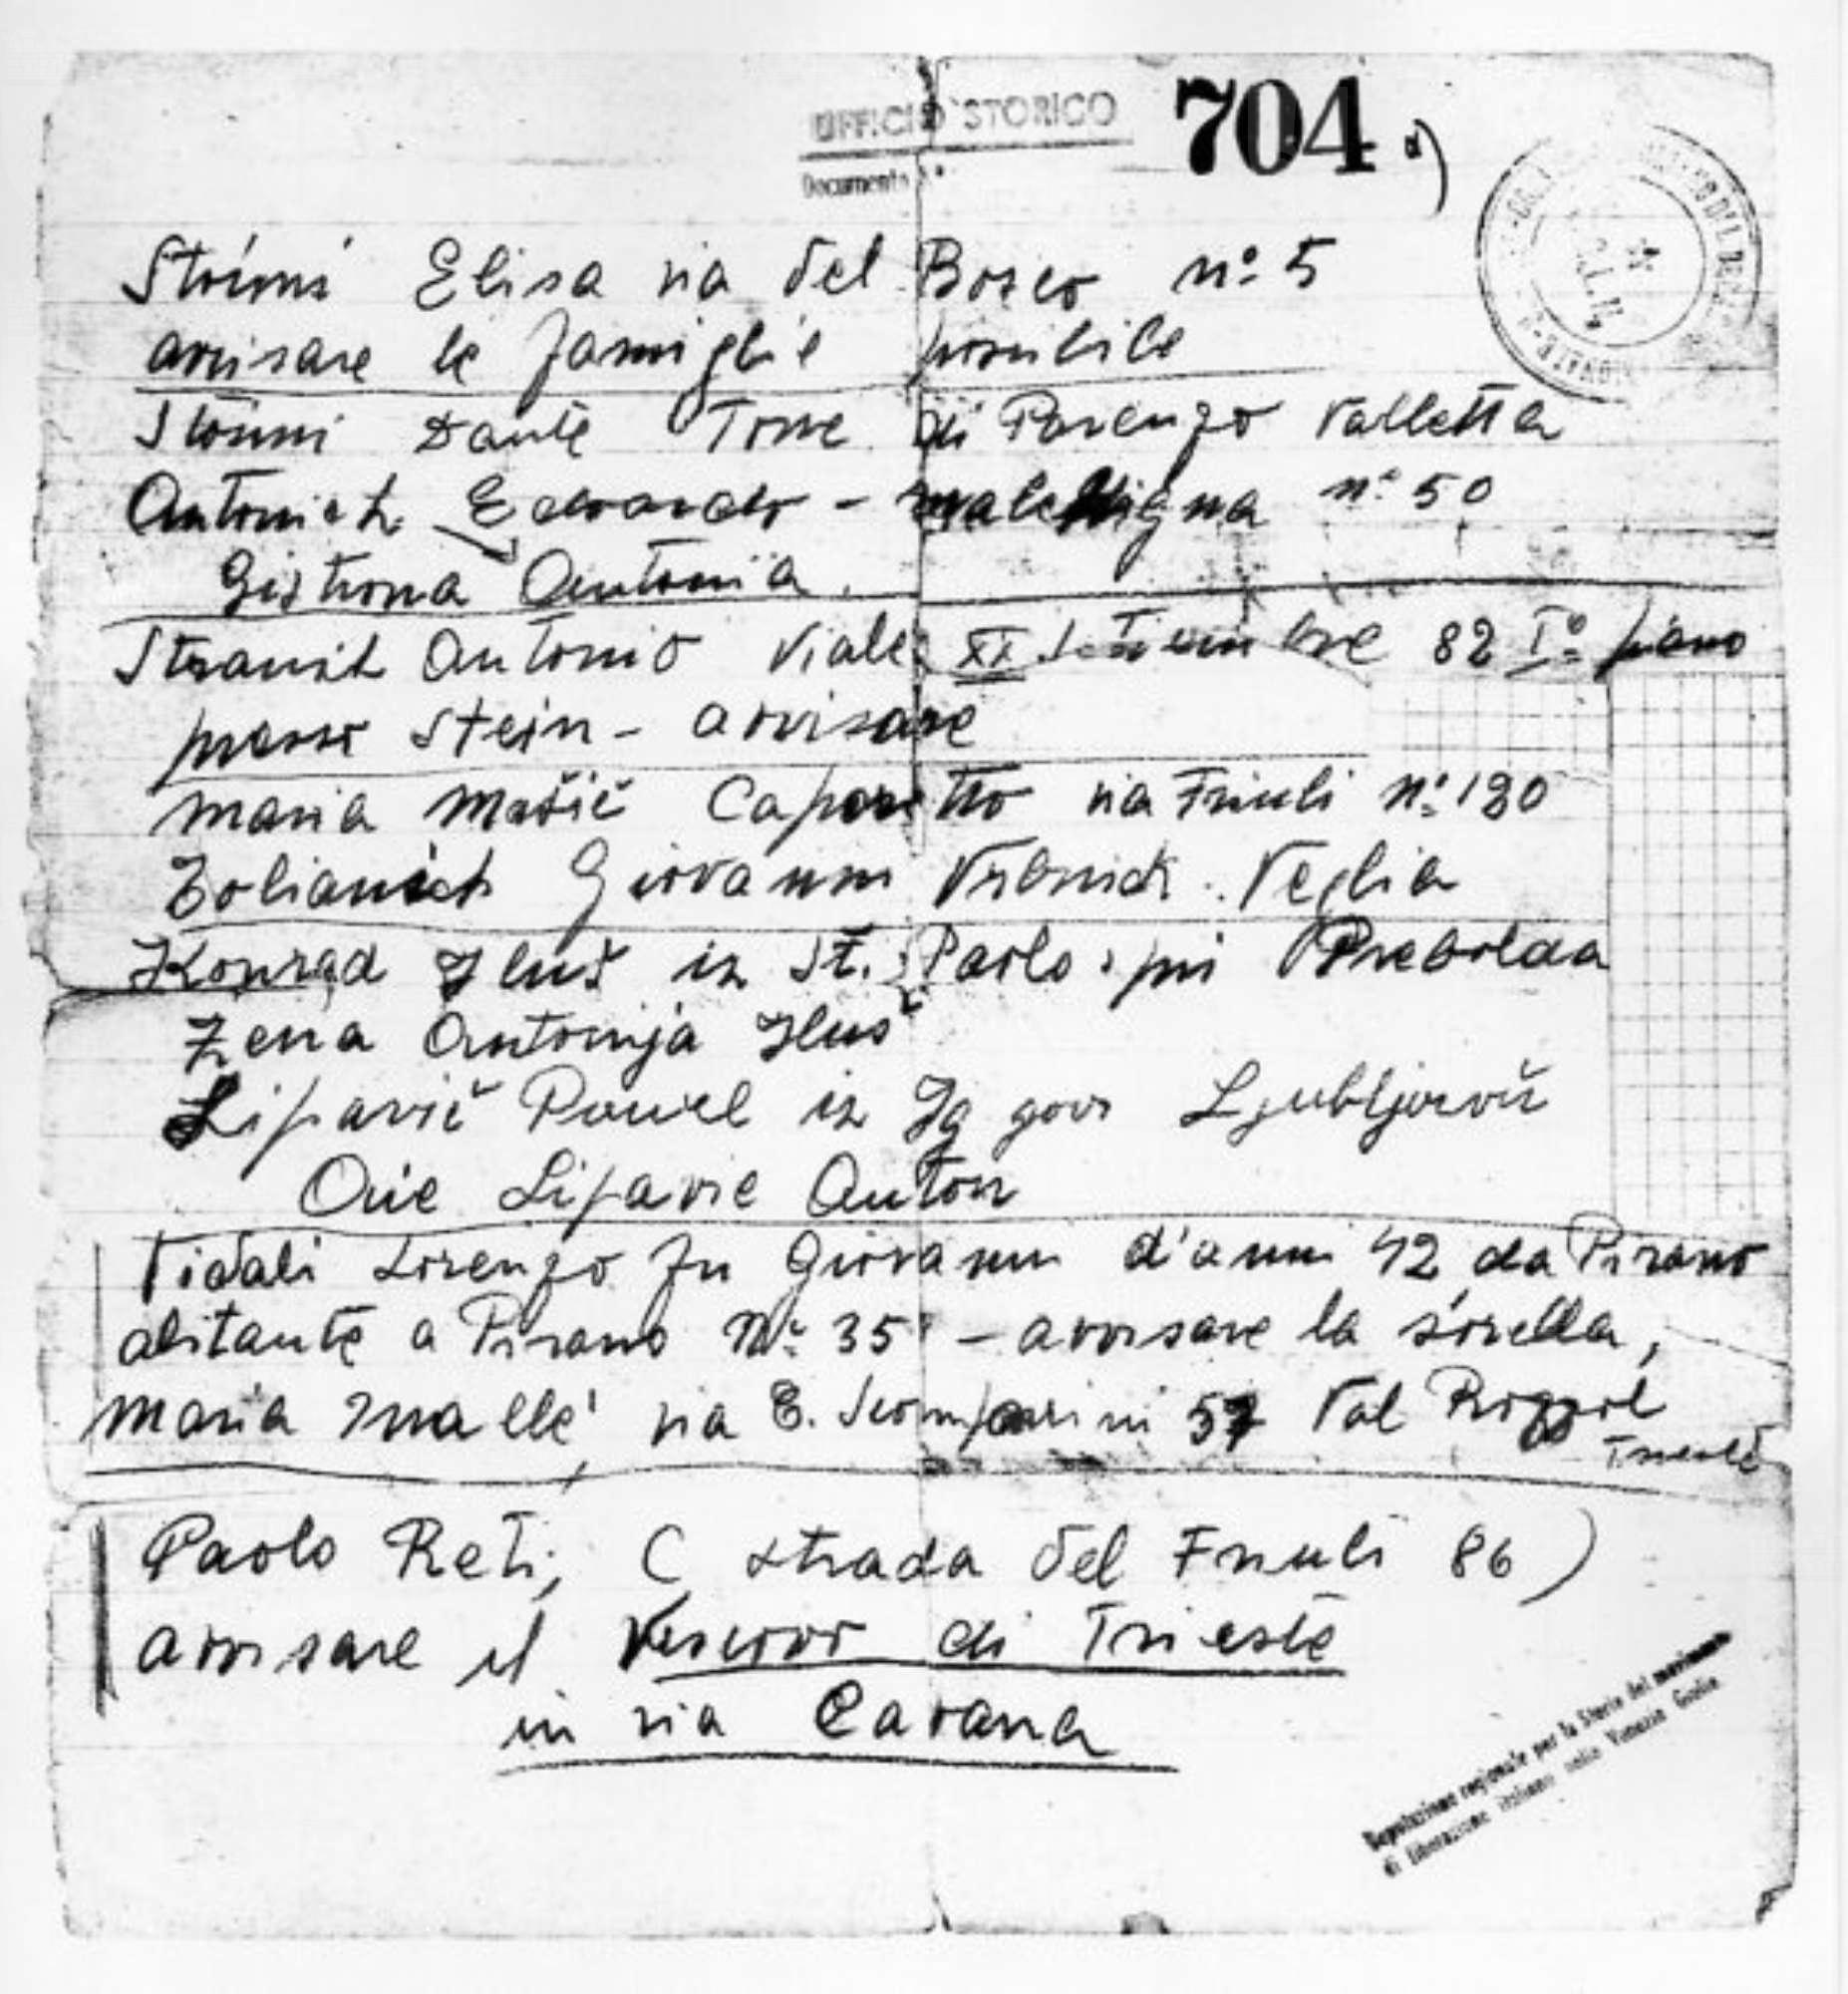 UFFICIO STORICO 704 a)
Documento N°
Stònni Elisa via del Bosco n° 5
avvisare le famiglie possibile
Stònni Dante Torre di Parenzo Valletta
Antonich Edoardo - n° 50
Gistrona Antonia
Stranich Antonio Viale XX Settembre 82 I° piano
presso Stein - avvisare
Maria Mašič Caporetto via Friuli n° 180
Zolianich Giovanni Vrbnick. Veglia
Konrad Iluš iz St. Paolo pri Prebolda
Žena Antonija Iluš
Lipavič Pavel iz Ig
Oče Lipavic Anton
Vidali Lorenzo fu Giovanni d'anni 42 da Pirano
abitante a Pirano N° 35 - avvisare la sorella,
Maria Mallé via E. Scomparini 57 Val Rozzol
Trieste
Paolo Reti, ( strada del Friuli 86 )
avvisare il Vescovo di Trieste
in via Cavana
Deputazione regionale per la Storia del movimento
di liberazione italiano nella Venezia Giulia